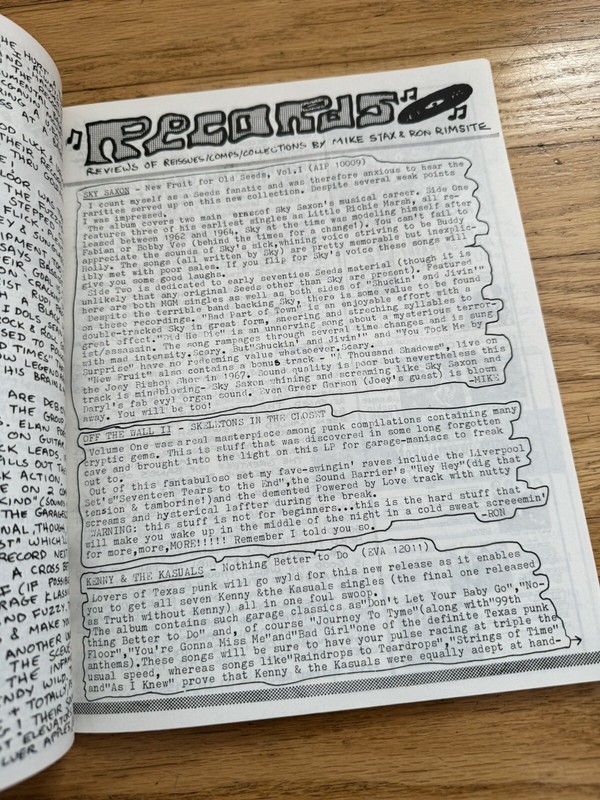 Records
REVIEWS OF REISSUES/COMPS/COLLECTIONS BY MIKE STAX & RON RIMSITE
SKY SAXON - New Fruit for Old Seeds, Vol.I (AIP 10009)
I count myself as a Seeds fanatic and was therefore anxious to hear the
rarities served up on this new collection. Despite several weak points
I was impressed.
The album covers two main eras of Sky Saxon's musical career. Side One
features three of his earliest singles as Little Richie Marsh, all re-
leased between 1962 and 1964. Sky at the time was modeling himself after
Fabian or Bobby Vee (behind the times for a change!). You can't fail to
appreciate the sounds of Sky's sick, whining voice striving to be Buddy
Holly. The songs (all written by Sky) are pretty memorable but inexplic-
ibly met with poor sales. If you flip for Sky's voice these songs will
give you some good laughs.
Side Two is dedicated to early seventies Seeds material (though it is
unlikely that any original Seeds other than Sky are present). Featured
here are both MGM singles as well as both sides of "Shuckin' and Jivin'"
Despite the terrible band backing Sky, there is some value to be found
on these recordings. "Bad Part of Town" is an enjoyable effort with a
double-tracked Sky in great form, sneering and streching syllables to
great effect. "Did He Die" is an unnerving song about a mysterious terror-
ist/assassin. The song rampages through several time changes and is sung
with mad intensity. Scary. But "Shuckin' and Jivin'" and "You Took Me By
Surprise" have no redeeming value whatsoever. Scary.
"New Fruit" also contains a bonus track - "A Thousand Shadows", live on
the Joey Bishop Show in 1967. Sound quality is poor but nevertheless this
track is mindblowing- Sky Saxon whining and screaming like Sky Saxon and
Daryl's fab evyl organ sound. Even Greer Garson (Joey's guest) is blown
away. You will be too!
-MIKE
OFF THE WALL II - SKELETONS IN THE CLOSET
Volume One was a real masterpiece among punk compilations containing many
cryptic gems. This is stuff that was discovered in some long forgotten
cave and brought into the light on this LP for garage-maniacs to freak
out to.
Out of this fantabuloso set my fave-swingin' raves include the Liverpool
Set's"Seventeen Tears to the End",the Sound Barrier's "Hey Hey"(dig that
tension & tambourine!)and the demented Powered by Love track with nutty
screams and hysterical laffter during the break.
WARNING: this stuff is not for beginners...this is the hard stuff that
will make you wake up in the middle of the night in a cold sweat screemin'
for more,more,MORE!!!!! Remember I told you so.
-RON
KENNY & THE KASUALS - Nothing Better to Do (EVA 12011)
Lovers of Texas punk will go wyld for this new release as it enables
you to get all seven Kenny &the Kasuals singles (the final one released
as Truth without Kenny) all in one foul swoop.
The album contains such garage classics as"Don't Let Your Baby Go","No-
thing Better to Do" and, of course "Journey To Tyme"(along with"99th
Floor","You're Gonna Miss Me"and"Bad Girl"one of the definite Texas punk
anthems).These songs will be sure to have your pulse racing at triple the
usual speed, whereas songs like"Raindrops to Teardrops","Strings of Time"
and"As I Knew" prove that Kenny & the Kasuals were equally adept at hand-